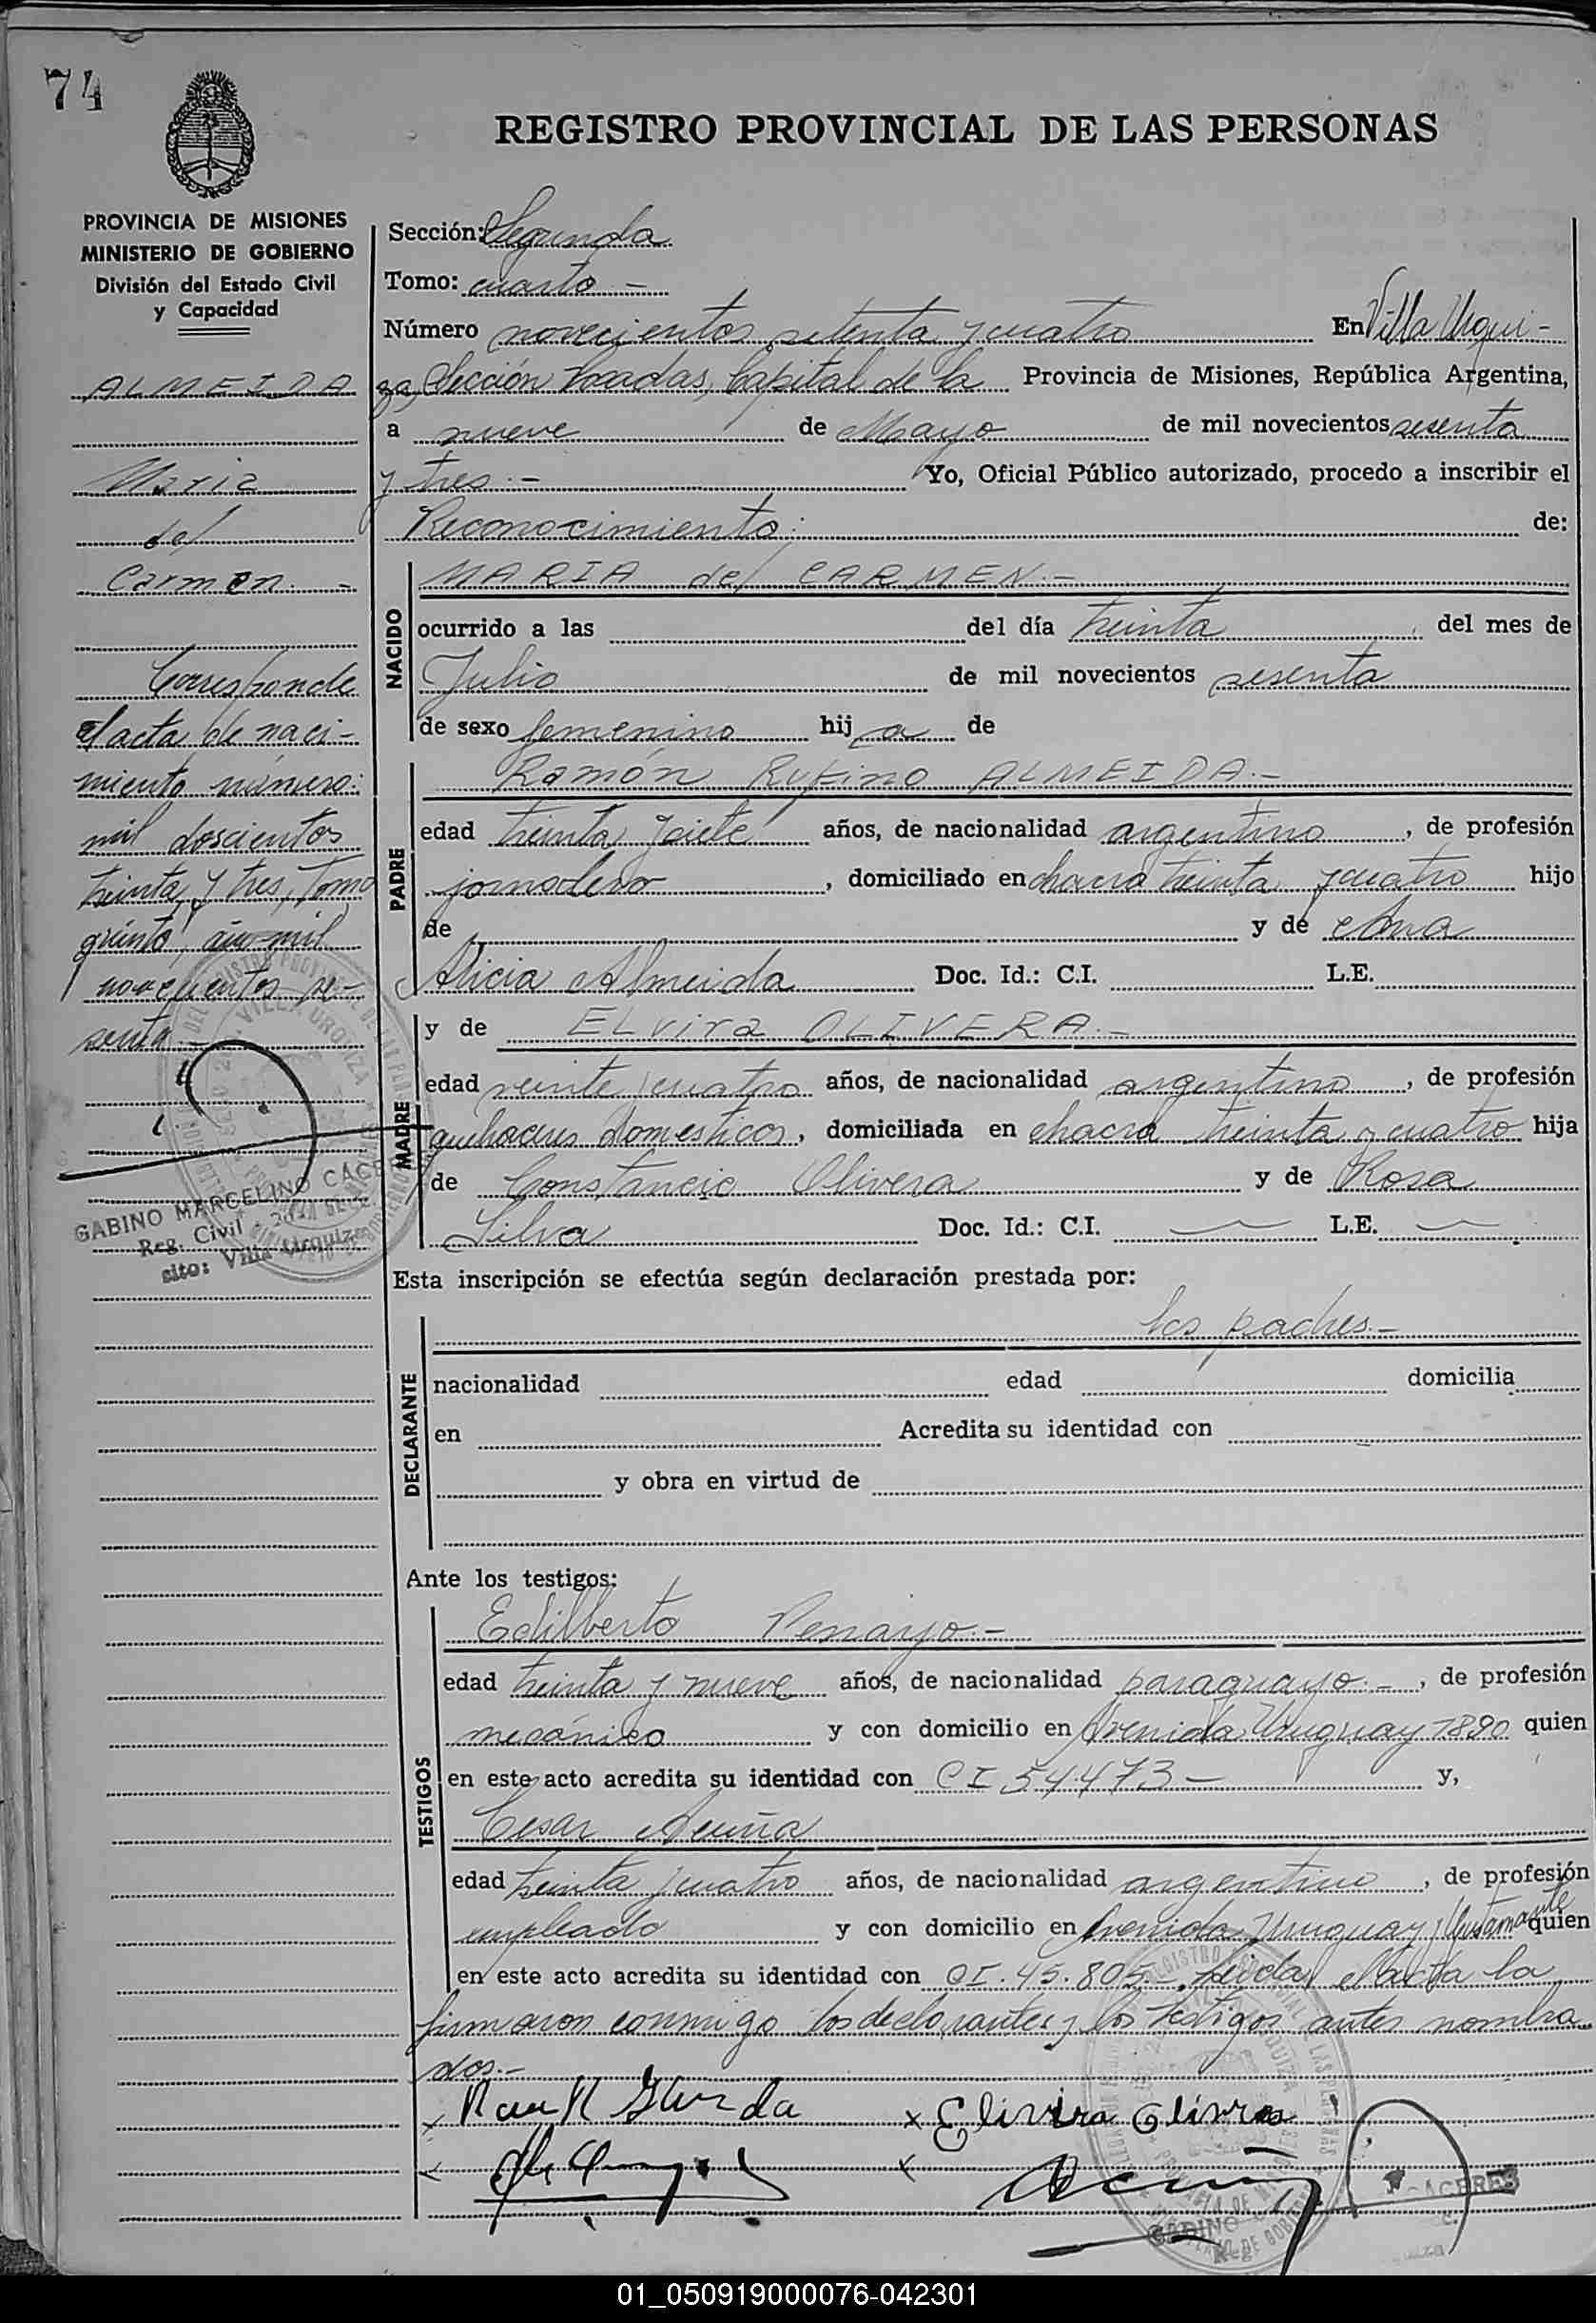 74
REGISTRO PROVINCIAL DE LAS PERSONAS
PROVINCIA DE MISIONES
MINISTERIO DE GOBIERNO
División del Estado Civil
y Capacidad
ALMEIDA
Maria
del
Carmen.-
Corresponde
al acta de naci-
miento número:
mil doscientos
treinta y tres, Tomo
quinto, año mil
novecientos se-
senta.-
GABINO MARCELINO CACE
Reg. Civil
sito: Villa Urquiza
Sección: Segunda
Tomo: cuarto -
Número novecientos setenta y cuatro En Villa Urqui-
za, Sección Posadas, Capital de la Provincia de Misiones, República Argentina,
a nueve de Mayo de mil novecientos sesenta
y tres.- Yo, Oficial Público autorizado, procedo a inscribir el
Reconocimiento: de:
NACIDO
MARIA del CARMEN.-
ocurrido a las del día treinta del mes de
Julio de mil novecientos sesenta
de sexo femenino hij a de
PADRE
Ramón Rufino ALMEIDA.-
edad treinta y siete años, de nacionalidad argentino, de profesión
jornalero, domiciliado en chacra treinta y cuatro hijo
de y de Ana
Alicia Almeida Doc. Id.: C.I. L.E.
MADRE
y de ELvira OLIVERA.-
edad veinte y cuatro años, de nacionalidad argentina, de profesión
quehaceres domesticos, domiciliada en chacra treinta y cuatro hija
de Constancio Olivera y de Rosa
Silva Doc. Id.: C.I. L.E.
Esta inscripción se efectúa según declaración prestada por:
DECLARANTE
los padres.-
nacionalidad edad domicilia
en Acredita su identidad con
y obra en virtud de
Ante los testigos:
TESTIGOS
Edilberto Penayo.-
edad treinta y nueve años, de nacionalidad paraguayo.-, de profesión
mecánico y con domicilio en Avenida Uruguay 1890 quien
en este acto acredita su identidad con CI 54.473- y,
Cesar Acuña
edad treinta y cuatro años, de nacionalidad argentino, de profesión
empleado y con domicilio en Avenida Uruguay y Bustamante quien
en este acto acredita su identidad con CI. 45.805.- Leida el acta la
firmaron conmigo los declarantes y los testigos antes nombra
dos.-
x x Elivira Olivra
CACERES
GABINO
Reg
01_050919000076-042301